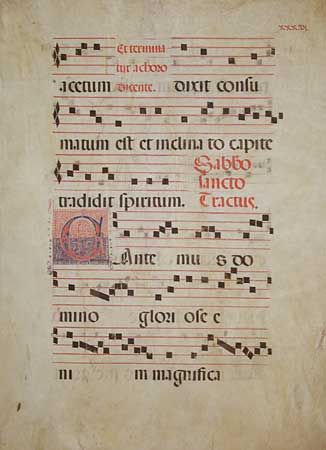 Et termina
tur a choro
acetum dicente. dixit consu
matum est et inclina to capite
Sabbo
sancto
tradidit spiritum. Tractus.
CAnte mu s do
mino glori ose e
ni m magnifica